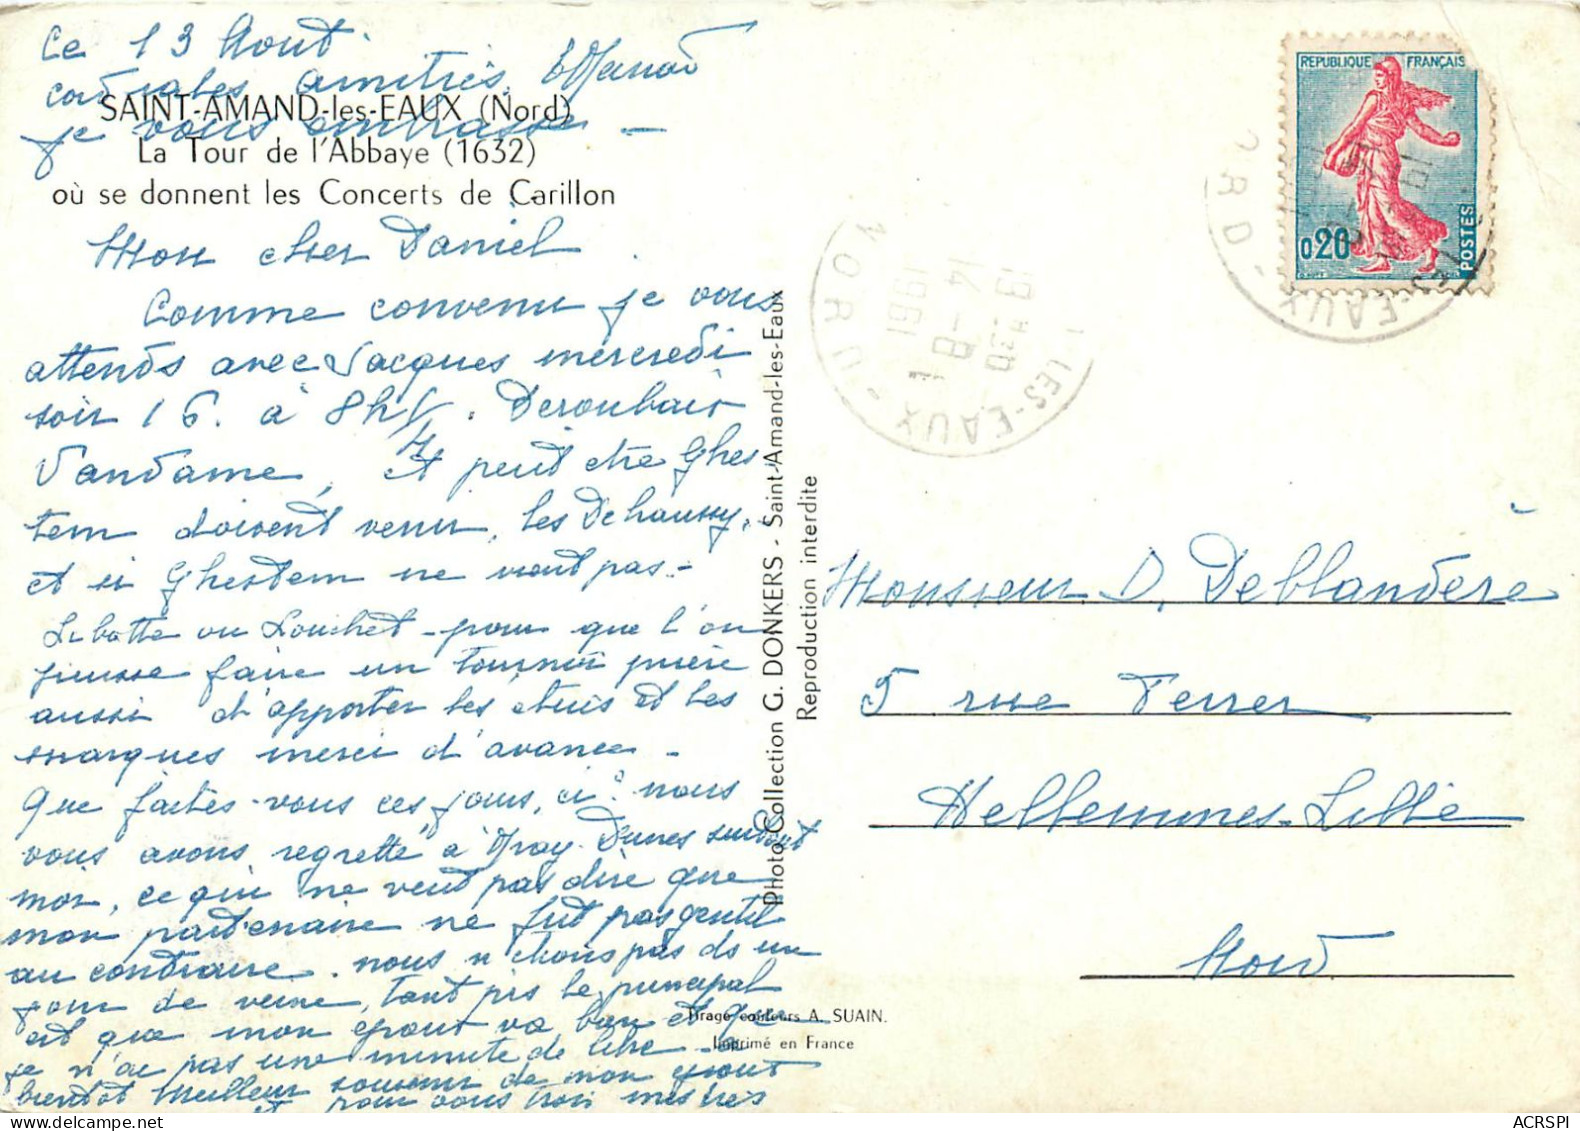 Ce 13 Aout
cordiales amitiés
je vous embrasse -
SAINT-AMAND-les-EAUX (Nord)
La Tour de l'Abbaye (1632)
où se donnent les Concerts de Carillon
Mon cher Daniel
Comme convenu je vous
attends avec Jacques mercredi
soir 16. à 8h Deroubaix
Vandame, et peut etre Ghes
tem doivent venir, les Dehaussy.
et si Ghestem ne vient pas -
Libotte ou Louchet - pour que l'on
puisse faire un tournoi prière
aussi d'apporter les étuis et les
marques merci d'avance -
Que faites-vous ces jours, ci? nous
vous avons regretté à Bray Dunes surtout
moi, ce qui ne veut pas dire que
mon partenaire ne fut pas gentil
au contraire. nous n'étions pas ds un
jour de veine, tant pis le principal
est que mon époux va bien et que
je n'ai pas une minute de libre - a
bientot Meilleur souvenir de mon époux
et pour vous trois mes très
Photo Collection G. DONKERS - Saint-Amand-les-Eaux
Reproduction interdite
Tirage couleurs A. SUAIN.
Imprimé en France
REPUBLIQUE FRANÇAISE
0.20
POSTES
LES-EAUX
NORD
19H30
14-8
1961
Monsieur D. Deblandère
5 rue Ferrer
Hellemmes-Lille
Nord
ACRSPI